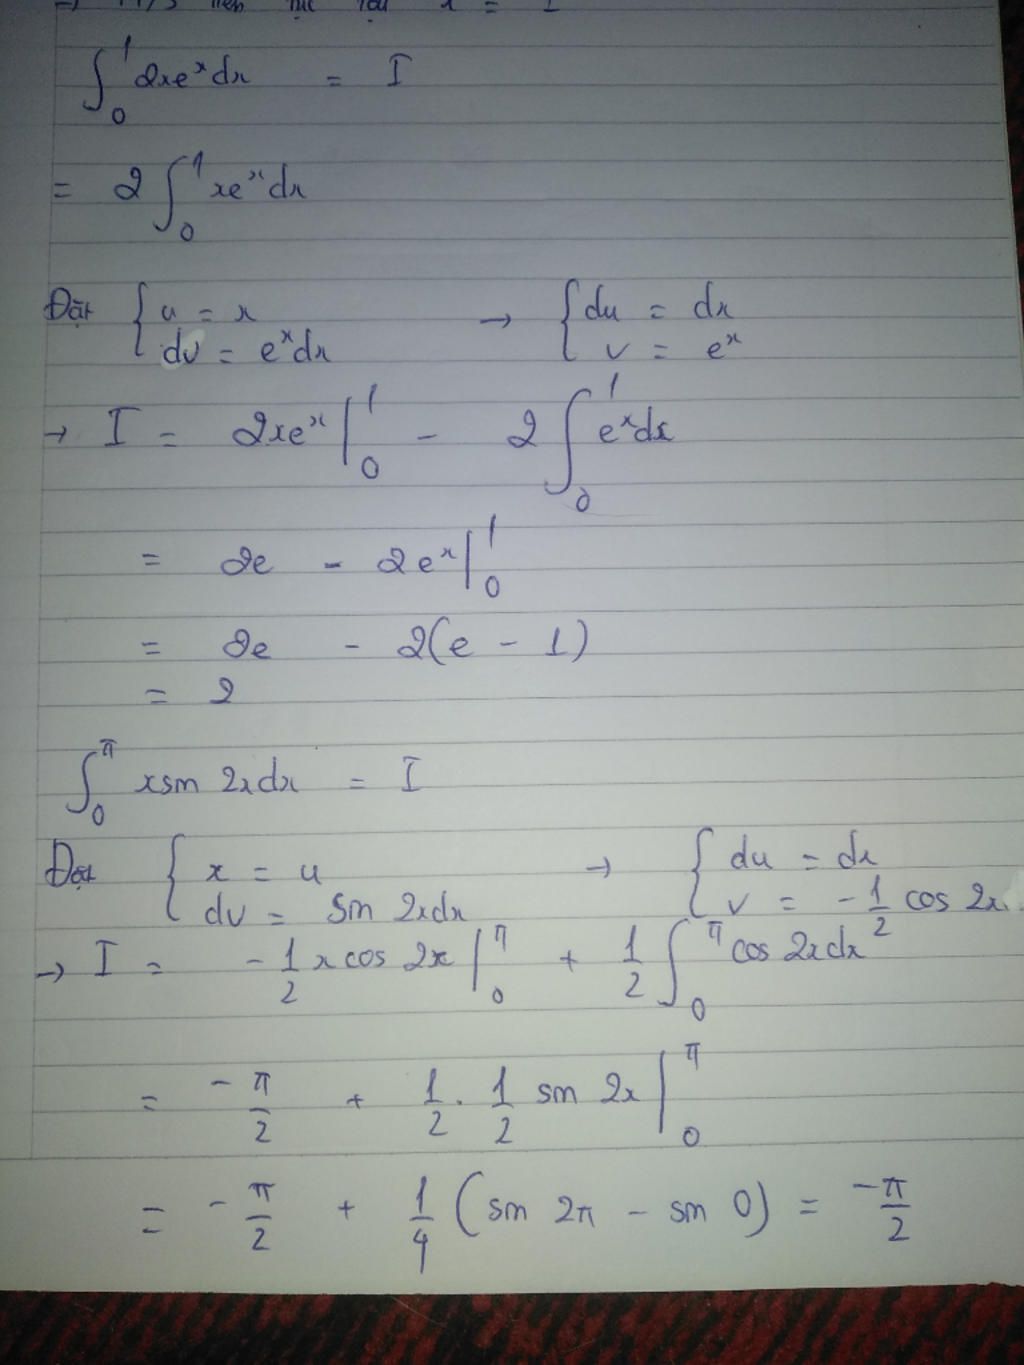 ∫₀¹ 2xeˣdx = I
= 2 ∫₀¹ xeˣdx
Đặt { u = x → { du = dx
dv = eˣdx v = eˣ
→ I = 2xeˣ |₀¹ - 2 ∫₀¹ eˣdx
= 2e - 2eˣ |₀¹
= 2e - 2(e - 1)
= 2
∫₀^π xsin 2xdx = I
Đặt { x = u → { du = dx
dv = sin 2xdx v = -1/2 cos 2x
→ I = -1/2 x cos 2x |₀^π + 1/2 ∫₀^π cos 2xdx
= -π/2 + 1/2 . 1/2 sin 2x |₀^π
= -π/2 + 1/4 (sin 2π - sin 0) = -π/2